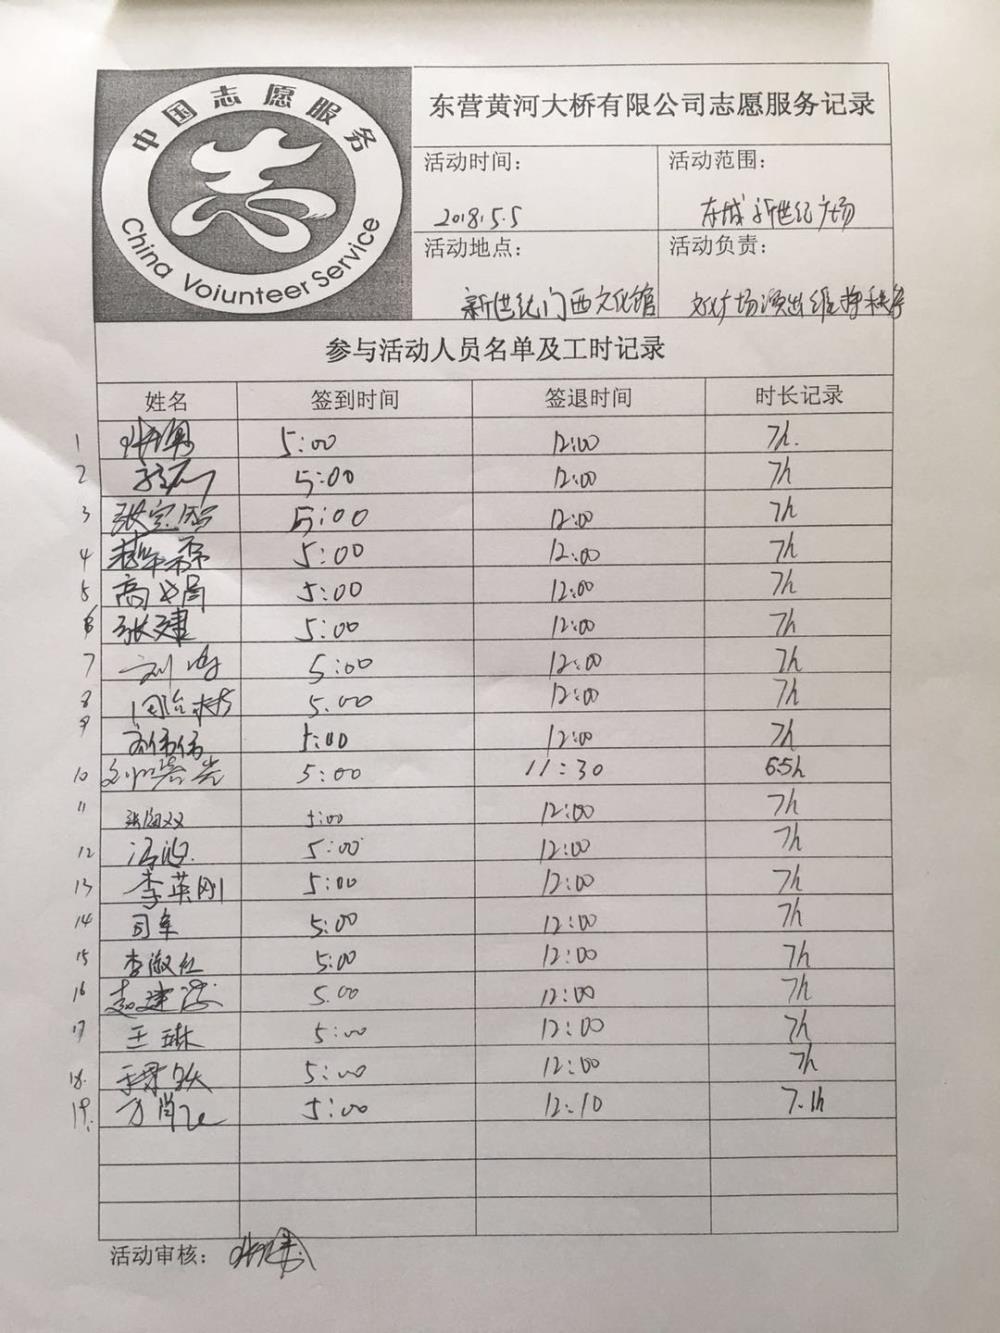 中国志愿服务
China Voiunteer Service
东营黄河大桥有限公司志愿服务记录
活动时间： 活动范围：
2018.5.5 东城新世纪广场
活动地点： 活动负责：
新世纪门西文化馆 广场演出维持秩序
参与活动人员名单及工时记录
姓名 签到时间 签退时间 时长记录
1 5:00 12:00 7h.
2 5:00 12:00 7h
3 5:00 12:00 7h
4 5:00 12:00 7h
5 高 5:00 12:00 7h
6 张建 5:00 12:00 7h
7 刘 5:00 12:00 7h
8 5:00 12:00 7h
9 伟伟 5:00 12:00 7h
10 5:00 11:30 6.5h
11 张海双 5:00 12:00 7h
12 5:00 12:00 7h
13 李英刚 5:00 12:00 7h
14 司军 5:00 12:00 7h
15 李淑红 5:00 12:00 7h
16 赵建 5:00 12:00 7h
17 王琳 5:00 12:00 7h
18. 5:00 12:00 7h
19. 5:00 12:10 7.1h
活动审核：